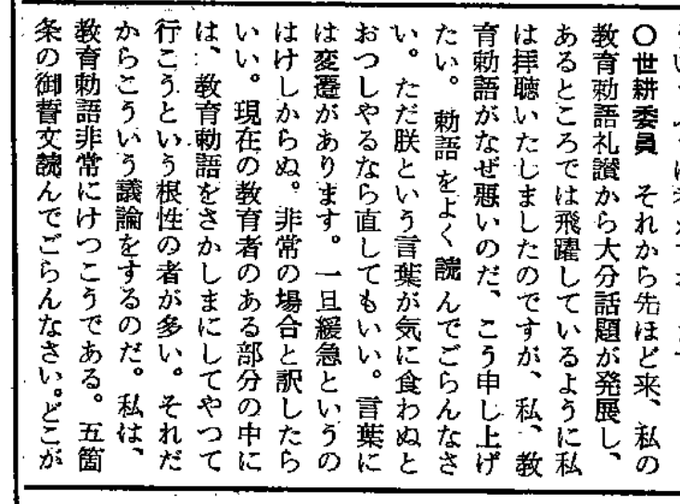 〇世耕委員　それから先ほど来、私の
教育勅語礼讃から大分話題が発展し、
あるところでは飛躍しているように私
は拝聴いたしましたのですが、私、教
育勅語がなぜ悪いのだ、こう申し上げ
たい。勅語をよく読んでごらんなさ
い。ただ朕という言葉が気に食わぬと
おつしやるなら直してもいい。言葉に
は変遷があります。一旦緩急というの
はけしからぬ。非常の場合と訳したら
いい。現在の教育者のある部分の中に
は、教育勅語をさかしまにしてやつて
行こうという根性の者が多い。それだ
からこういう議論をするのだ。私は、
教育勅語非常にけつこうである。五箇
条の御誓文読んでごらんなさい。どこが